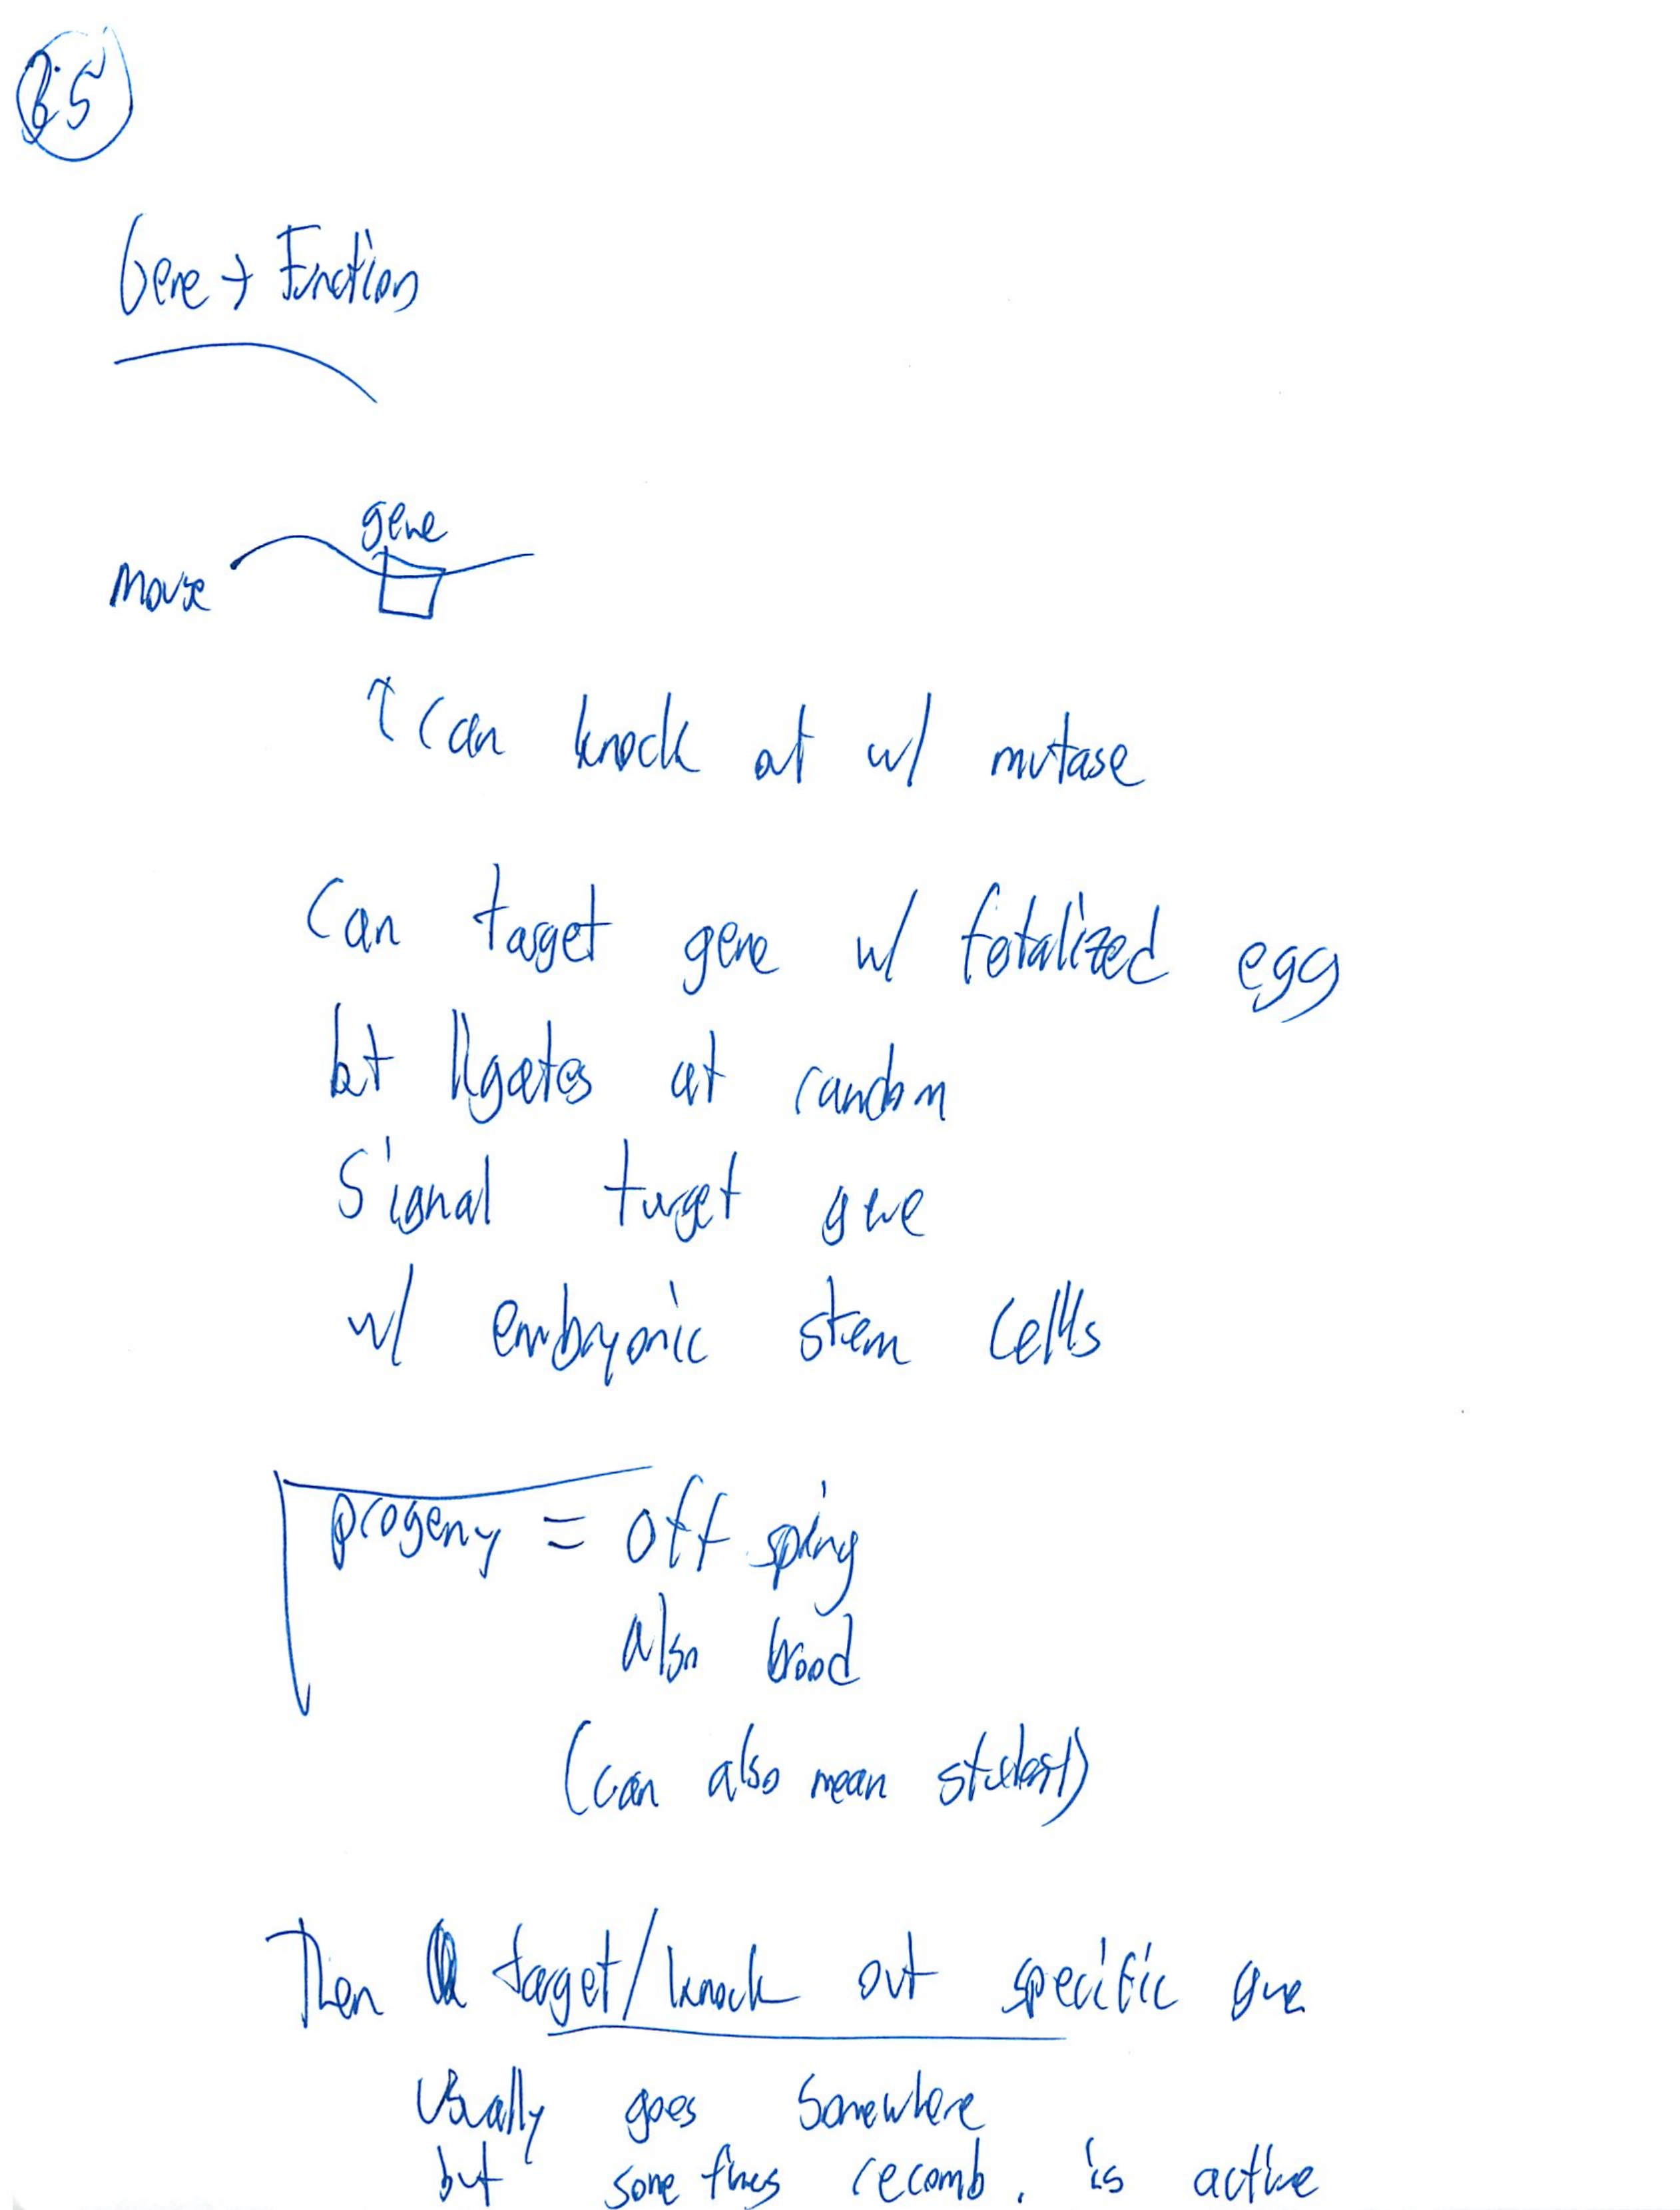 6.5
Gene → Function
gene
Mouse
↑ can knock ot w/ mutase
Can target gene w/ fertalized egg
bt ligates at random
Signal target gene
w/ embryonic stem cells
progeny = off spring
also brood
(can also mean student)
Then target/knock out specific gene
Usually goes somewhere
but sometimes recomb. is active